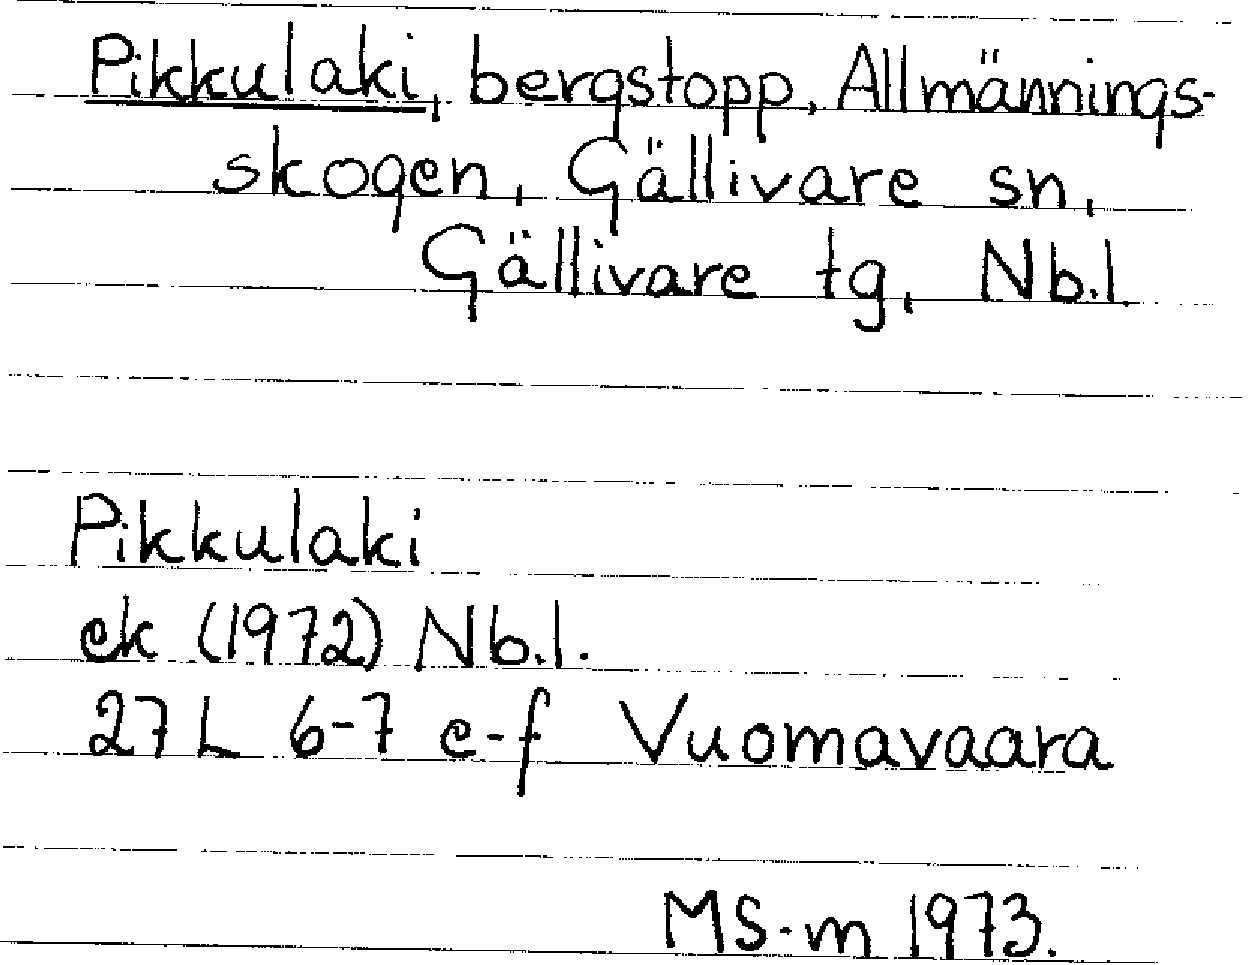 Pikkulaki, bergstopp, Allmännings-
skogen, Gällivare sn,
Gällivare tg, Nb.l.
Pikkulaki
ek (1972) Nb.l.
27 L 6-7 e-f Vuomavaara
MS-m 1973.